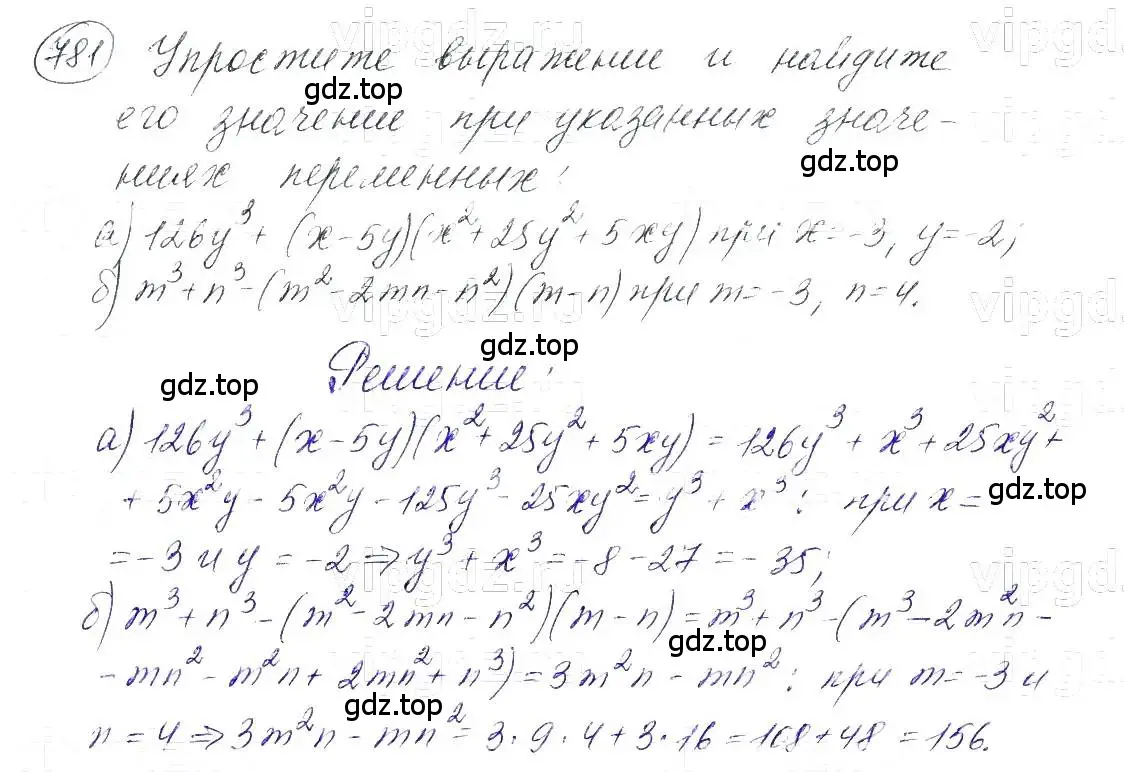 781 Упростите выражение и найдите
его значение при указанных значе-
ниях переменных:
а) 126y³ + (x - 5y)(x² + 25y² + 5xy) при x = -3, y = -2;
б) m³ + n³ - (m² - 2mn - n²)(m - n) при m = -3, n = 4.
Решение:
а) 126y³ + (x - 5y)(x² + 25y² + 5xy) = 126y³ + x³ + 25xy² +
+ 5x²y - 5x²y - 125y³ - 25xy² = y³ + x³ : при x =
= -3 и y = -2 ⇒ y³ + x³ = -8 - 27 = -35;
б) m³ + n³ - (m² - 2mn - n²)(m - n) = m³ + n³ - (m³ - 2m²n -
- mn² - m²n + 2mn² + n³) = 3m²n - mn² : при m = -3 и
n = 4 ⇒ 3m²n - mn² = 3 · 9 · 4 + 3 · 16 = 108 + 48 = 156.
gdz.top
gdz.top
gdz.top
gdz.top
gdz.top
gdz.top
gdz.top
vipgdz.ru
vipgd
vipgdz.ru
vipgd
vipgdz.ru
vipgd
vipgdz.ru
vipgd
vipgdz.ru
vipgd